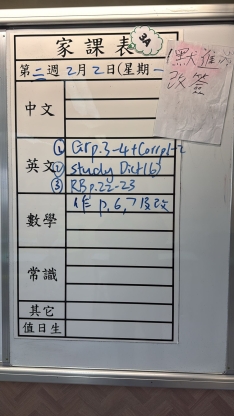 家課表
3A
第二週2月2日(星期一
中文
英文
① Gr p.3-4+Corr p1-2
② study Dict(6)
③ RB p.22-23
數學
作 p,6,7及改
常識
其它
值日生
改簽